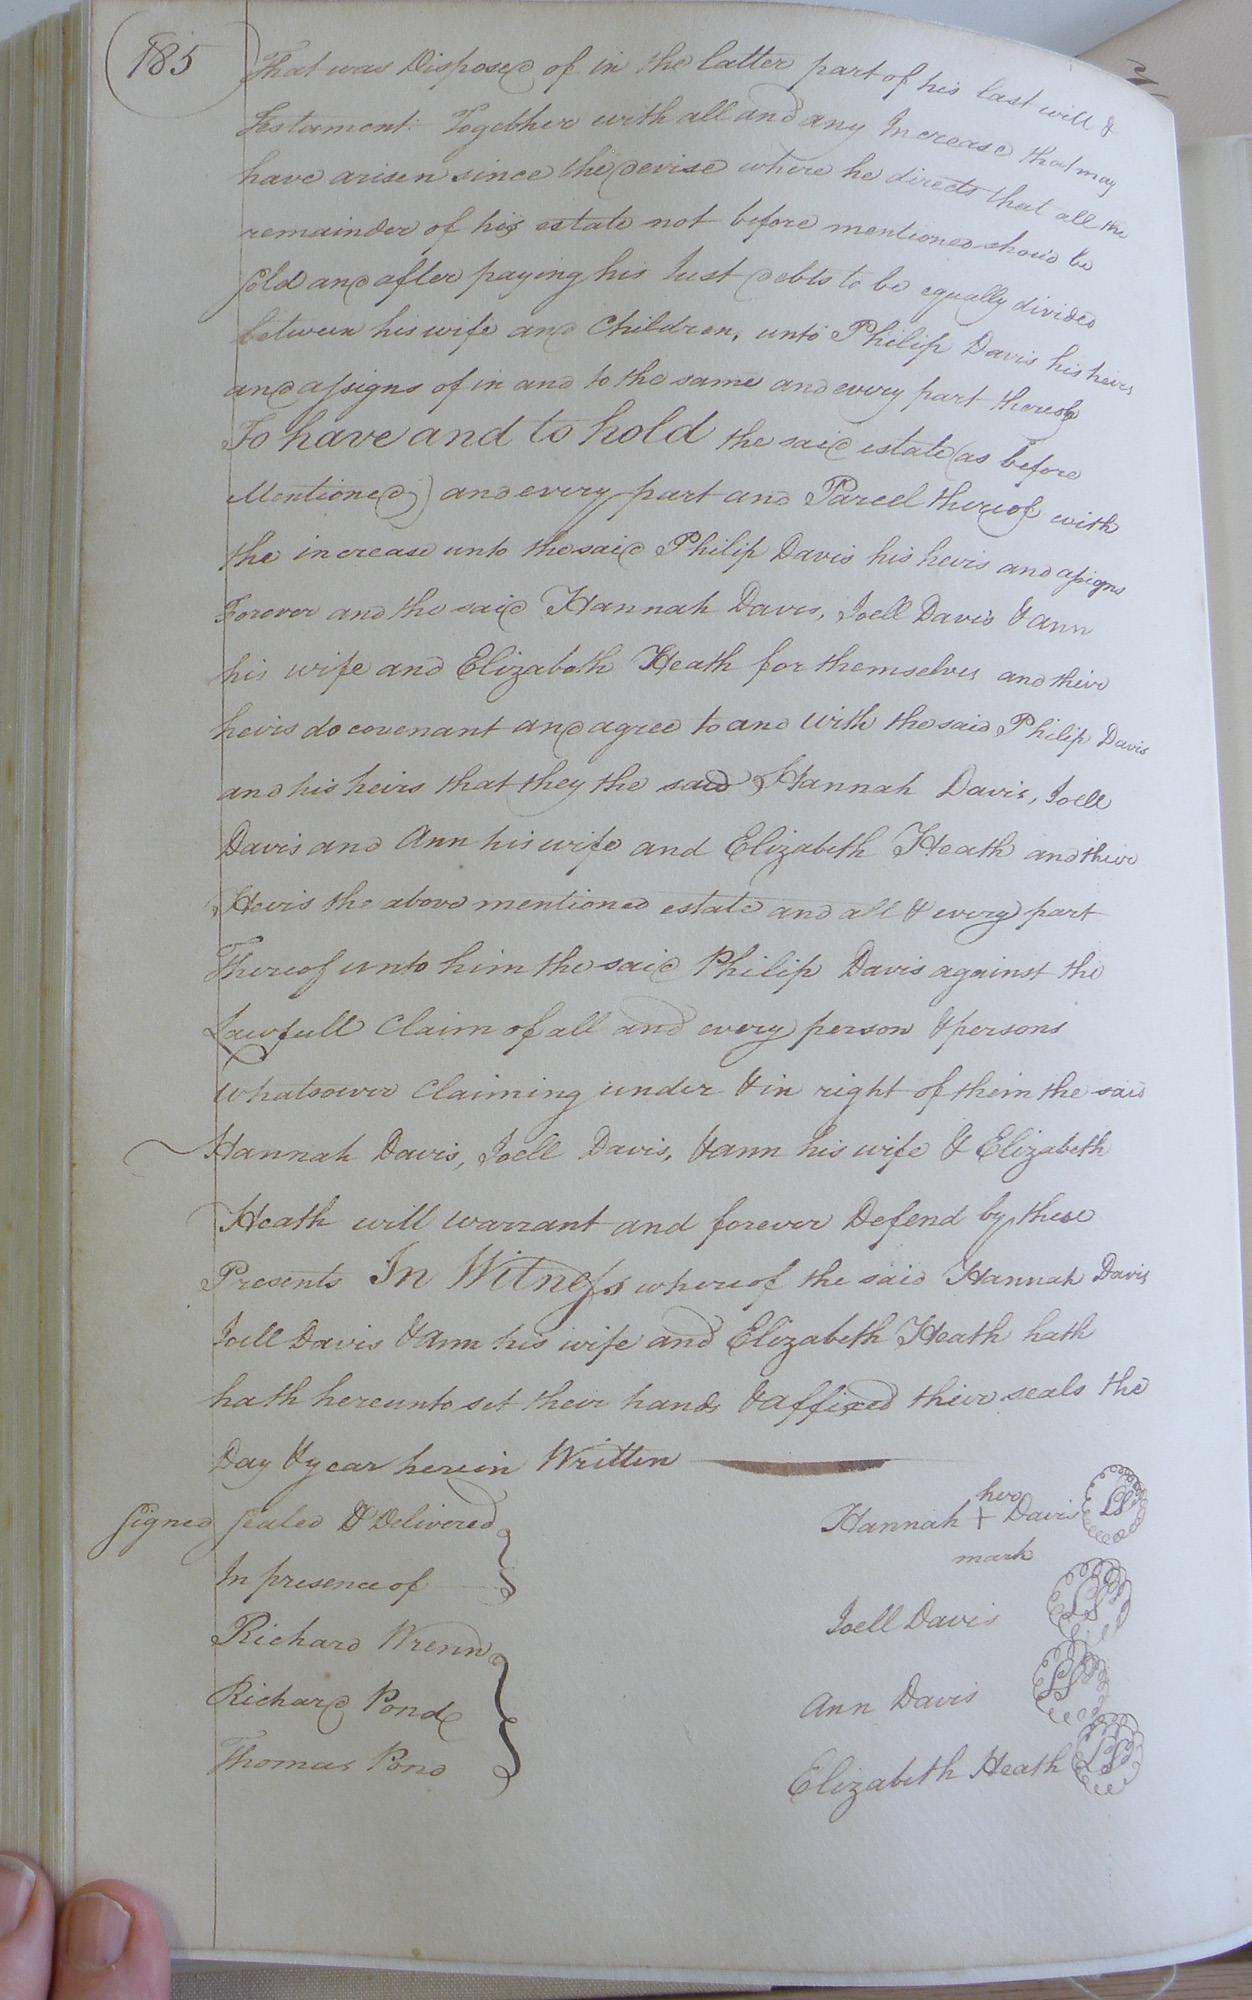 185
That was Disposed of in the latter part of his last will &
Testament: Together with all and any Increase that may
have arisen since the devise where he directs that all the
remainder of his estate not before mentioned shou'd be
sold and after paying his Just debts to be equally divided
between his wife and Children, unto Philip Davis his heirs
and assigns of in and to the same and every part thereof
To have and to hold the said estate (as before
Mentioned) and every part and Parcel thereof with
the increase unto the said Philip Davis his heirs and assigns
Forever and the said Hannah Davis, Joell Davis & Ann
his wife and Elizabeth Heath for themselves and their
heirs do covenant and agree to and with the said Philip Davis
and his heirs that they the said Hannah Davis, Joell
Davis and Ann his wife and Elizabeth Heath and their
Heirs the above mentioned estate and all & every part
Thereof unto him the said Philip Davis against the
Lawfull Claim of all and every person & persons
whatsoever Claiming under & in right of them the said
Hannah Davis, Joell Davis, & Ann his wife & Elizabeth
Heath will warrant and forever Defend by these
Presents In Witness whereof the said Hannah Davis
Joell Davis & Ann his wife and Elizabeth Heath hath
hath hereunto set their hands & affixed their seals the
Day & year herein Written
Signed Sealed & Delivered
In presence of
Richard Wrenn
Richard Pond
Thomas Pond
her
Hannah + Davis LS
mark
Joell Davis LS
Ann Davis LS
Elizabeth Heath LS